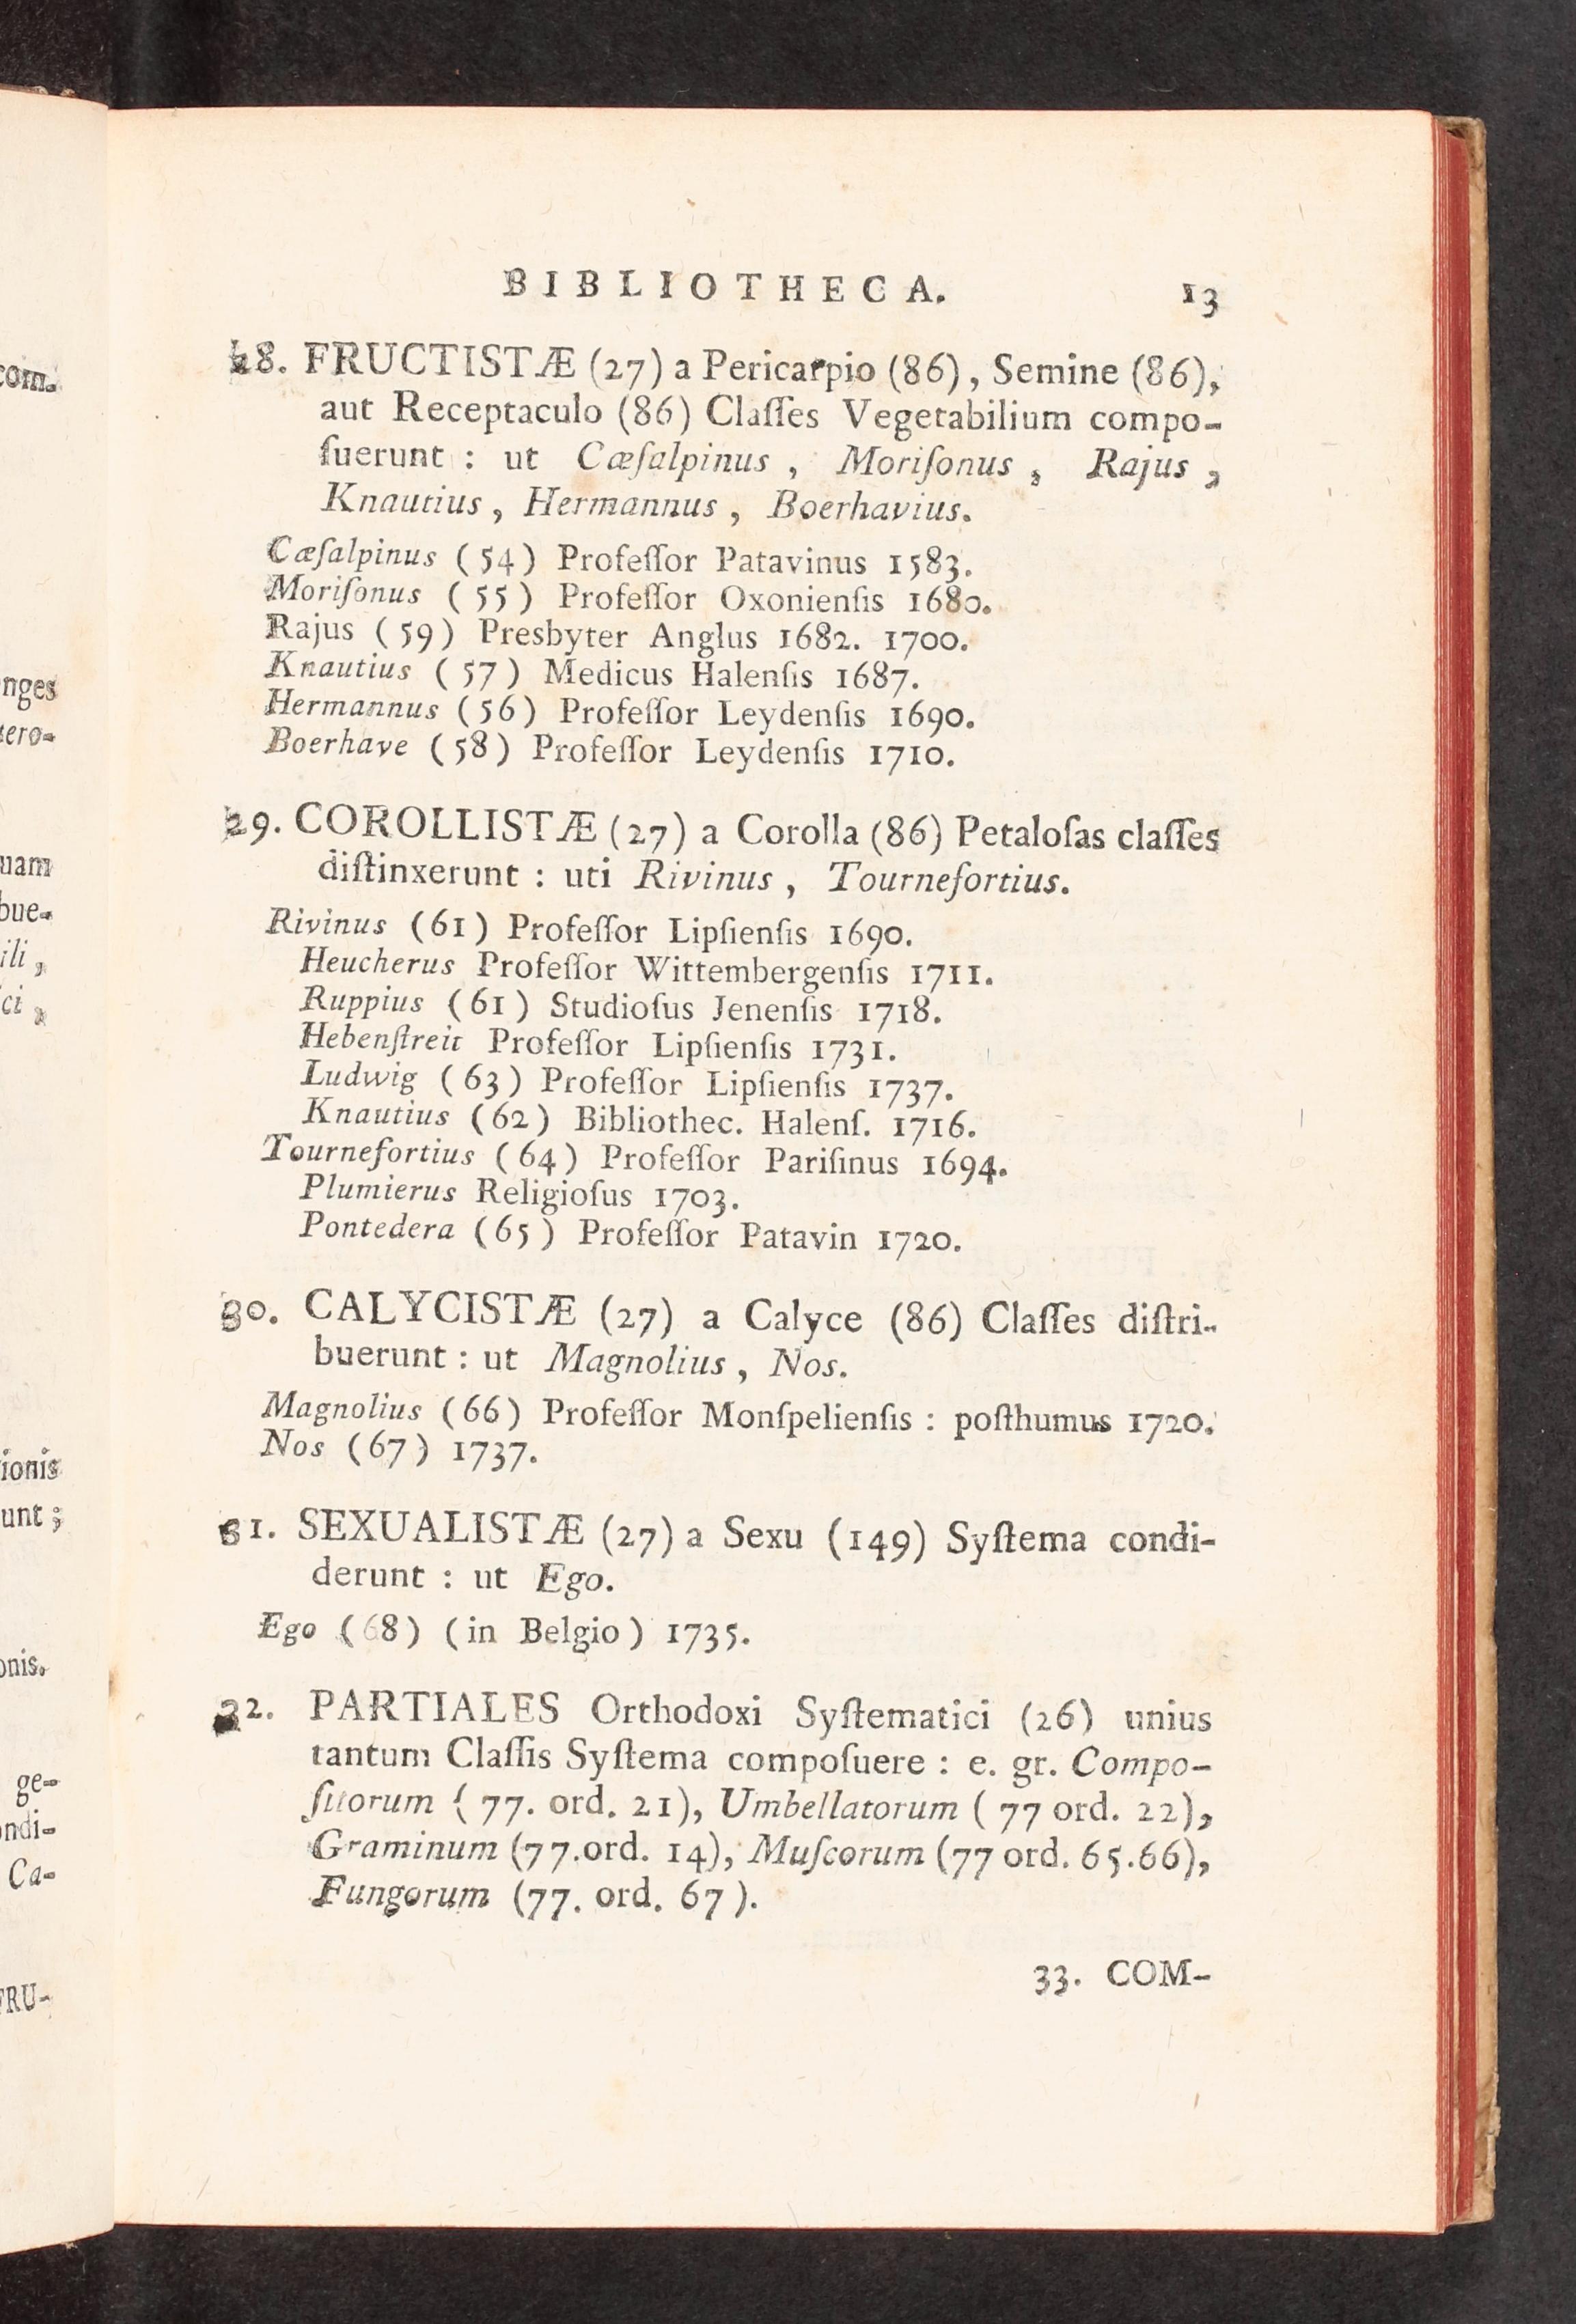 com.
nges
tero-
uam
bue-
ili,
ci,
ionis
unt;
onis.
ge-
ondi-
Ca-
FRU-
BIBLIOTHECA. 13
28. FRUCTISTÆ (27) a Pericarpio (86), Semine (86),
aut Receptaculo (86) Claſſes Vegetabilium compo-
ſuerunt : ut Cæſalpinus , Moriſonus , Rajus ,
Knautius , Hermannus , Boerhavius.
Cæſalpinus (54) Profeſſor Patavinus 1583.
Moriſonus (55) Profeſſor Oxonienſis 1680.
Rajus (59) Presbyter Anglus 1682. 1700.
Knautius (57) Medicus Halenſis 1687.
Hermannus (56) Profeſſor Leydenſis 1690.
Boerhave (58) Profeſſor Leydenſis 1710.
29. COROLLISTÆ (27) a Corolla (86) Petaloſas claſſes
diſtinxerunt : uti Rivinus , Tournefortius.
Rivinus (61) Profeſſor Lipſienſis 1690.
Heucherus Profeſſor Wittembergenſis 1711.
Ruppius (61) Studioſus Jenenſis 1718.
Hebenſtreit Profeſſor Lipſienſis 1731.
Ludwig (63) Profeſſor Lipſienſis 1737.
Knautius (62) Bibliothec. Halenſ. 1716.
Tournefortius (64) Profeſſor Pariſinus 1694.
Plumierus Religioſus 1703.
Pontedera (65) Profeſſor Patavin 1720.
30. CALYCISTÆ (27) a Calyce (86) Claſſes diſtri-
buerunt : ut Magnolius , Nos.
Magnolius (66) Profeſſor Monſpelienſis : poſthumus 1720.
Nos (67) 1737.
31. SEXUALISTÆ (27) a Sexu (149) Syſtema condi-
derunt : ut Ego.
Ego (68) (in Belgio) 1735.
32. PARTIALES Orthodoxi Syſtematici (26) unius
tantum Claſſis Syſtema compoſuere : e. gr. Compo-
ſitorum (77. ord. 21), Umbellatorum (77 ord. 22),
Graminum (77.ord. 14), Muſcorum (77 ord. 65.66),
Fungorum (77. ord. 67).
33. COM-